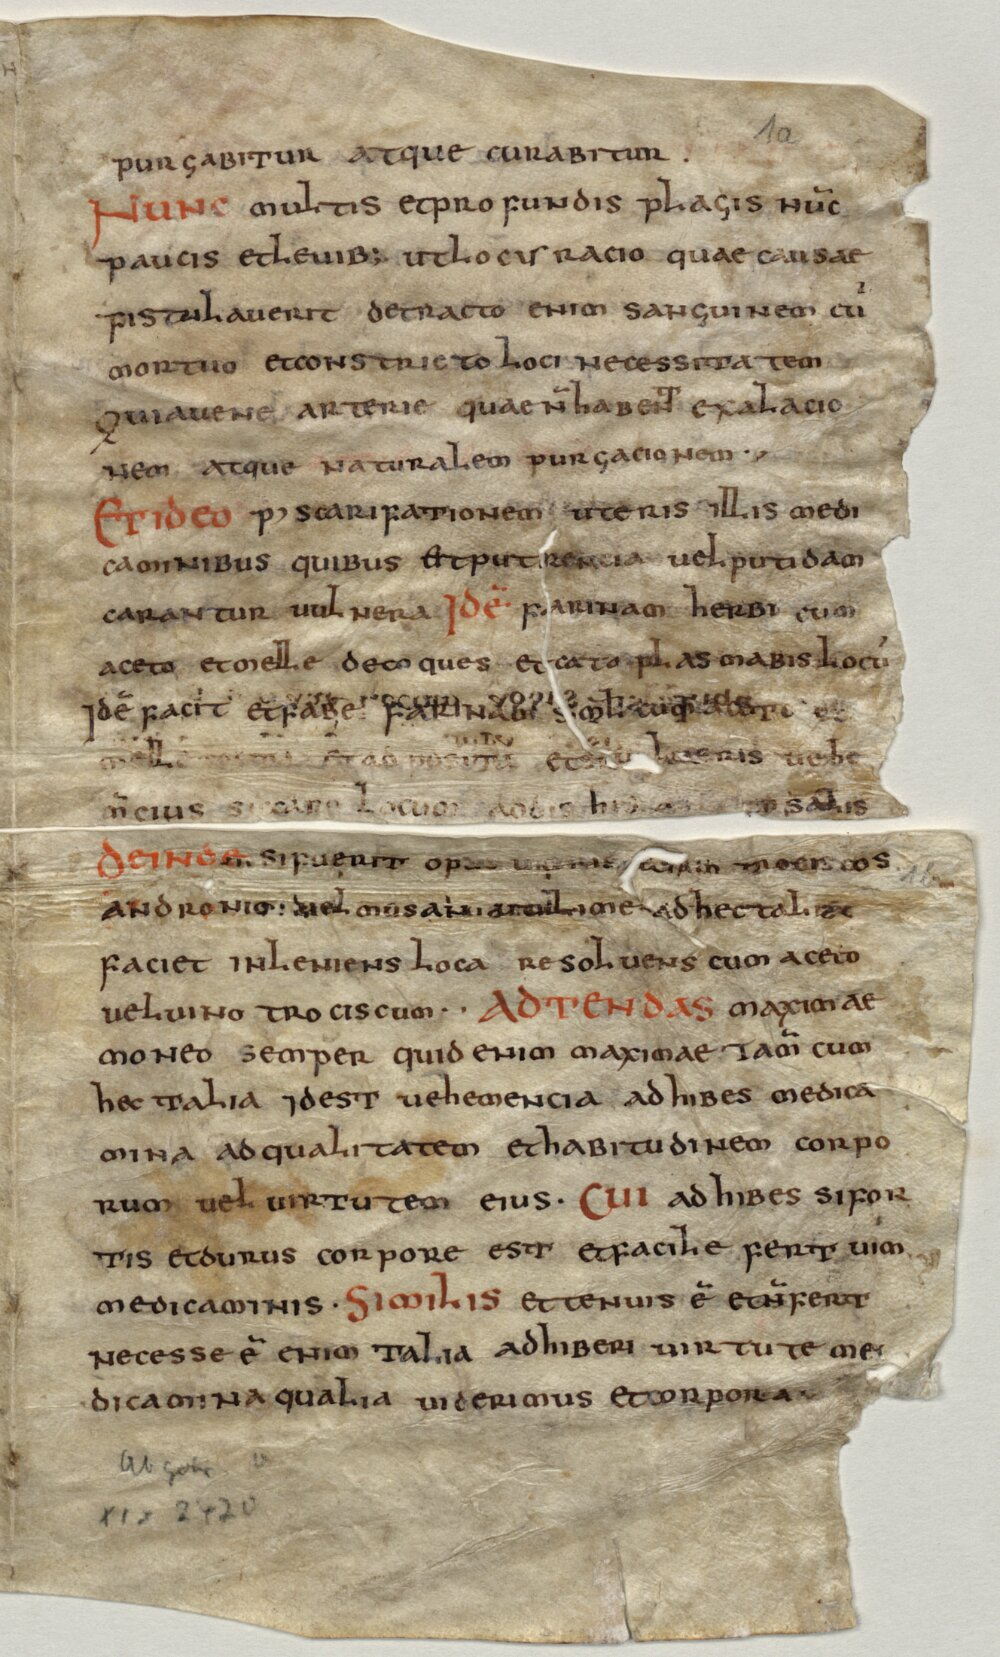 1a
purgabitur atque curabitur .
Nunc multis et profundis plagis nūc
paucis et leuib; ut locis racio quae causae
pistulauerit detracto enim sanguinem cū
mortuo et constricto loci necessitatem
Qui a uene arterie quae n̄ habent exalacio
nem atque naturalem purgacionem ·
Et ideo p' scarifationem uteris illis medi
caminibus quibus et putrencia uel putidam
carantur uulnera Idē farinam herbi cum
aceto et melle decoques et cato plasmabis locū
Idē facit et fabe farina
melle
m̄ eius siccare locum salis
Deinde si fuerit
andronic: uel musan ad hec talia
faciet inleniens loca resoluens cum aceto
uel uino trociscum · · Adtendas maximae
moneo semper quid enim maximae tam̄ cum
hec talia idest uehemencia adhibes medica
mina ad qualitatem et habitudinem corpo
rum uel uirtutem eius · Cui adhibes si for
tis et durus corpore est et facile fert uim
medicaminis · Similis et tenuis ē et n̄ fert
necesse ē enim talia adhiberi uirtute me
dicamina qualia uiderimus et corpora